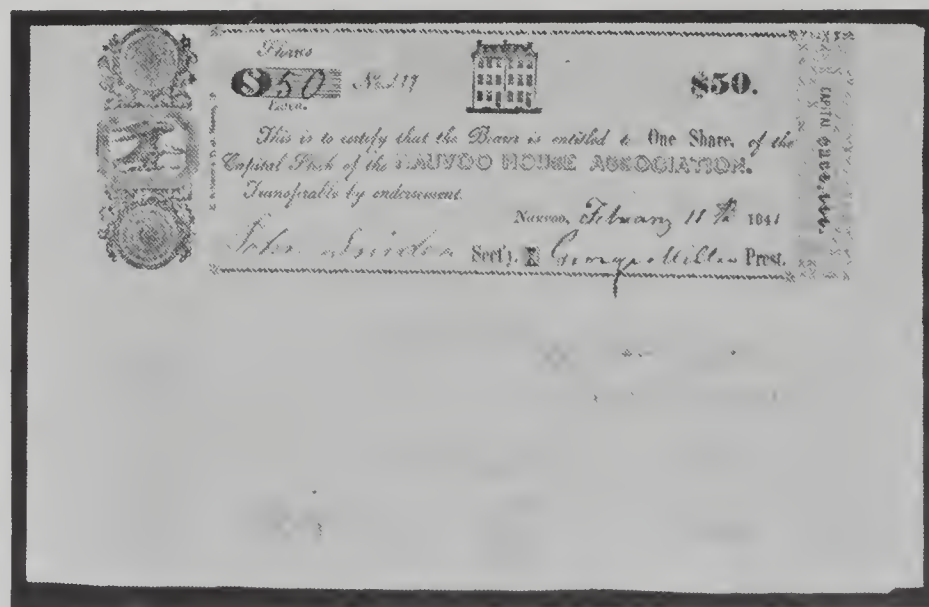 Shares
$50 No.
Each.
$50.
This is to certify that the Bearer is entitled to One Share, of the
Capital Stock of the NAUVOO HOUSE ASSOCIATION.
Transferable by endorsement.
Nauvoo, February 11th 1841
John Snider Sect'y. George Miller Prest.
CAPITAL